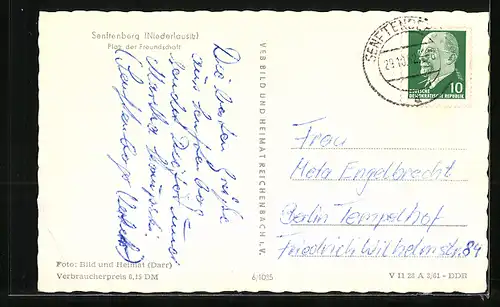 Senftenberg (Niederlausitz)
Platz der Freundschaft
Die besten Grüße
aus Senftenberg
sendet
Martha
(Senftenberger
Foto: Bild und Heimat (Darr)
Verbraucherpreis 0,15 DM
VEB BILD UND HEIMAT REICHENBACH i. V.
6/1025
SENFTENBE
10
DEUTSCHE
DEMOKRATISCHE REPUBLIK
Frau
Meta Engelbrecht
Berlin Tempelhof
Friedrich Wilhelmstr. 84
V 11 28 A 3/61 - DDR